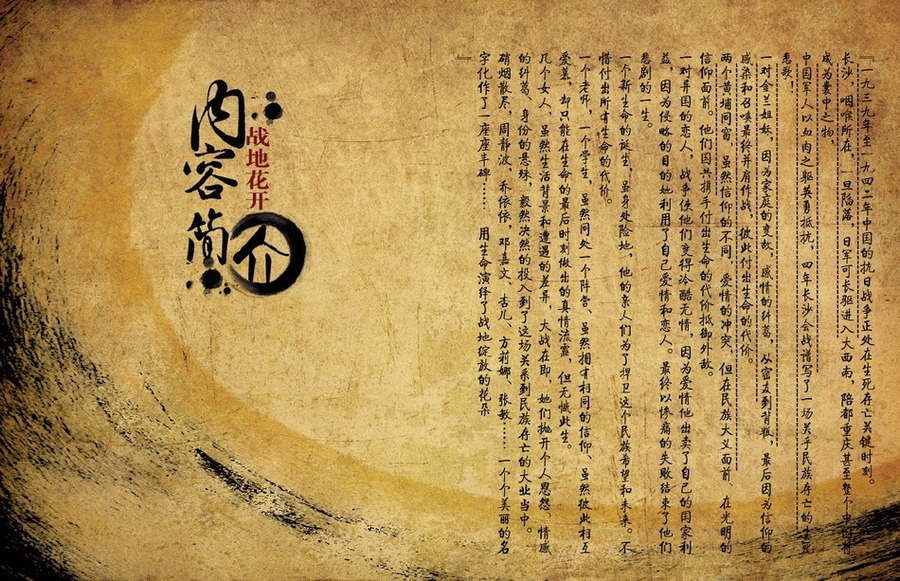 『一九三九年至一九四二年中国的抗日战争正处在生死存亡关键时刻。
长沙，咽喉所在，一旦陷落，日军可长驱进入大西南，陪都重庆甚至整个中国将
成为囊中之物，
中国军人以血肉之驱英勇抵抗，四年长沙会战谱写了一场关乎民族存亡的生死
悲歌！
一对金兰姐妹，因为家庭的变故，感情的纠葛，从密友到背叛，最后因为信仰的
感染和召唤最终并肩作战，彼此付出生命的代价。
两个黄埔同窗，虽然信仰的不同，爱情的冲突，但在民族大义面前，在光明的
信仰面前。他们国共携手付出生命的代价抵御外敌。
一对异国的恋人，战争使他们变得冷酷无情，因为爱情他出卖了自己的国家利
益，因为侵略的目的她利用了自己爱情和恋人。最终以惨痛的失败结束了他们
悲剧的一生。
一个新生命的诞生，虽身处险地，他的亲人们为了捍卫这个民族希望和未来。不
惜付出所有生命的代价。
一个老师，一个学生，虽然同处一个阵营、虽然拥有相同的信仰、虽然彼此相互
爱慕，却只能在生命的最后时刻做出的真情流露，但无憾此生。
几个女人，虽然生活背景和遭遇的差异，大战在即，她们抛开个人恩怨、情感
的纠葛、身份的悬殊，毅然决然的投入到了这场关系到民族存亡的大业当中。
硝烟散尽，周静波、乔依依、邓嘉文、杏儿、方莉娜、张敏……一个个美丽的名
字化作了一座座丰碑…… 用生命演绎了战地绽放的花朵
』
战地花开
内容简介